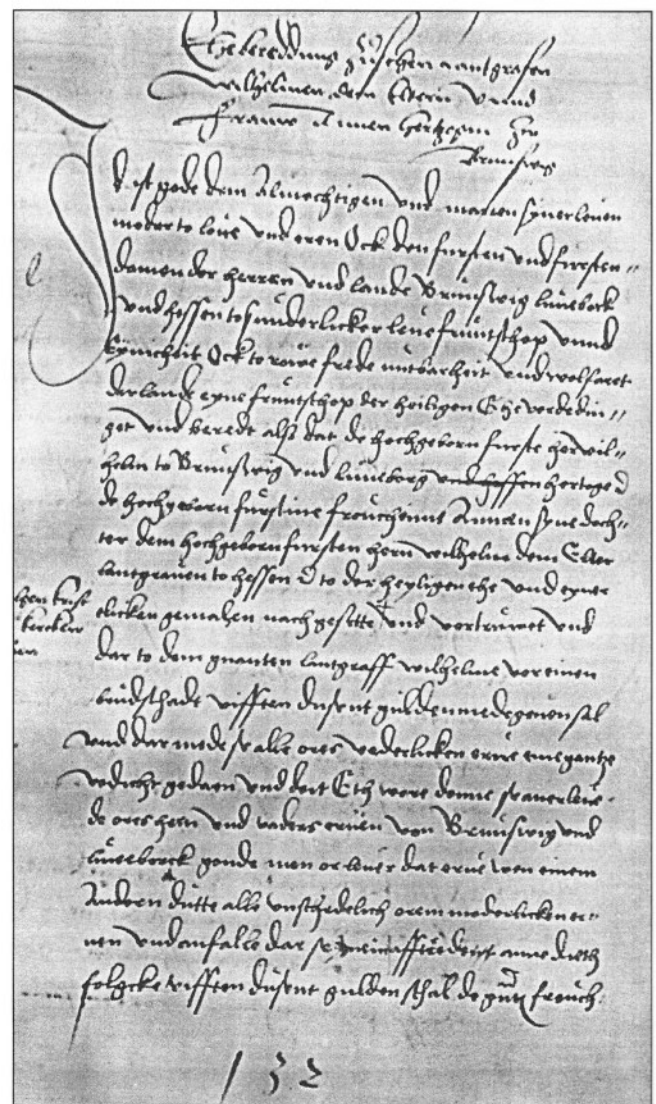 Ehebereddung zuschen Lantgrafen
Wilhelmen dem Eltern vnnd
Frauwe Annen Hertzegin zu
Brunswig
Id ist gode dem Almechtigen vnd marien syner leuen
moder to loue vnd eren Ock den fursten vnd fursten„
domen der herren vnd lande Brunßwig luneborch
vnd hessen to sunderlicker leue fruntschop vnnd
Eynicheit Ock to rouwe frede nutbarheit vnd wolfaret
der lande eyne fruntschop der heiligen Eye verdedin„
get vnd beredt alß dat de hochgeborn furste her wil„
helm to Brunßwig vnd luneborg vnd hessen hertoge
de hochgeborn furstine frouchenn Annen syne doch„
ter dem hochgebornfursten hern wilhelm dem Elter
lantgrauen to hessen to der heyligen ehe vnd eynen
elicken gemahen nach gesette vnd vortruwet vnd
kercken
dar to dem gnanten lantgraff wilhelme vor einen
brudschade vifften dusent gulden medegeuen sal
vnd dar mede se alle ores vaderlicken erue eine gantze
vorticht gedaen vnd doit Eth were denne
de ores hern vnd vaders eruen von Brunswig vnd
luneborck gonde men or leuer dat erue wen einem
Andern dutte alle vnschedelich orem moderlicken er„
uen vnd anfalle dar se
folgcke vifften dusent gulden schal de frouch
132